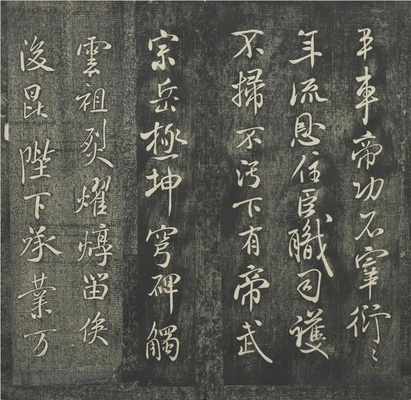 車帝功不宰衍〻
年流恩任臣職司護
不掃不污下有帝武
宗岳極坤穹碑觸
雲祖烈燿焞留俟
後昆陛下承業万